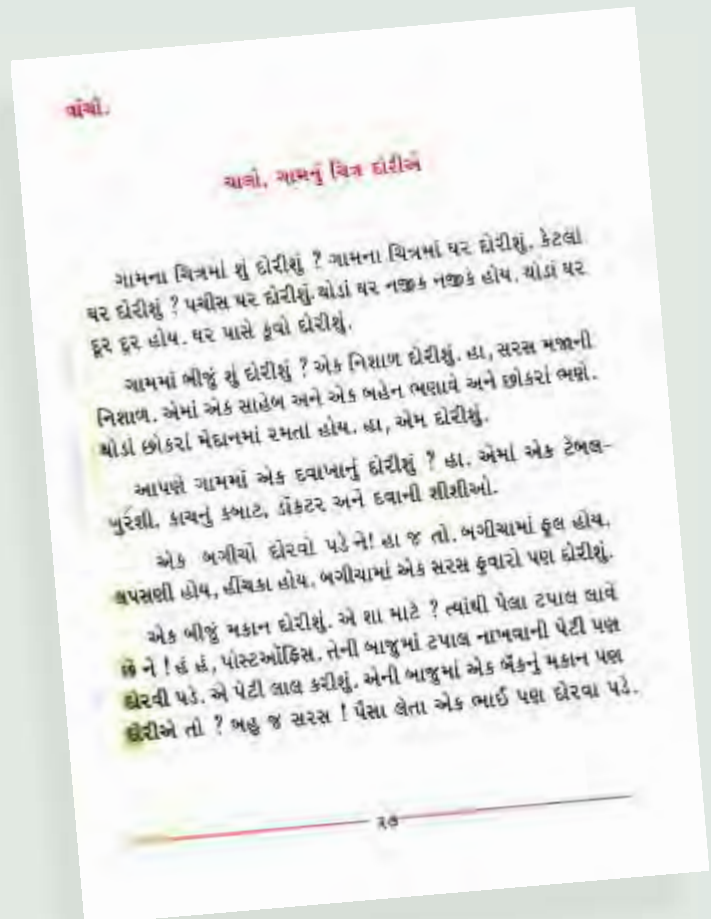 વાંચો.
ચાલો, ગામનું ચિત્ર દોરીએ
ગામના ચિત્રમાં શું દોરીશું ? ગામના ચિત્રમાં ઘર દોરીશું. કેટલાં
ઘર દોરીશું ? પચીસ ઘર દોરીશું. થોડાં ઘર નજીક નજીક હોય. થોડાં ઘર
દૂર દૂર હોય. ઘર પાસે કૂવો દોરીશું.
ગામમાં બીજું શું દોરીશું ? એક નિશાળ દોરીશું. હા, સરસ મજાની
નિશાળ. એમાં એક સાહેબ અને એક બહેન ભણાવે અને છોકરાં ભણે.
થોડાં છોકરાં મેદાનમાં રમતાં હોય. હા, એમ દોરીશું.
આપણે ગામમાં એક દવાખાનું દોરીશું ? હા. એમાં એક ટેબલ-
ખુરશી, કાચનું કબાટ, ડૉકટર અને દવાની શીશીઓ.
એક બગીચો દોરવો પડે ને! હા જ તો. બગીચામાં ફૂલ હોય,
લપસણી હોય, હીંચકા હોય. બગીચામાં એક સરસ ફુવારો પણ દોરીશું.
એક બીજું મકાન દોરીશું. એ શા માટે ? ત્યાંથી પેલા ટપાલ લાવે
છે ને ! હં હં, પોસ્ટઑફિસ. તેની બાજુમાં ટપાલ નાખવાની પેટી પણ
દોરવી પડે. એ પેટી લાલ કરીશું. એની બાજુમાં એક બૅંકનું મકાન પણ
દોરીએ તો ? બહુ જ સરસ ! પૈસા લેતા એક ભાઈ પણ દોરવા પડે.
૨૭